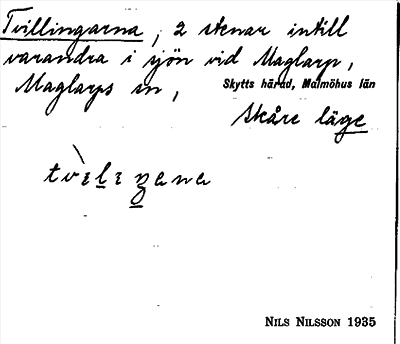 Tvillingarna, 2 stenar intill
varandra i sjön vid Maglarp,
Maglarps sn, Skytts härad, Malmöhus län
Skåre läge
NILS NILSSON 1935